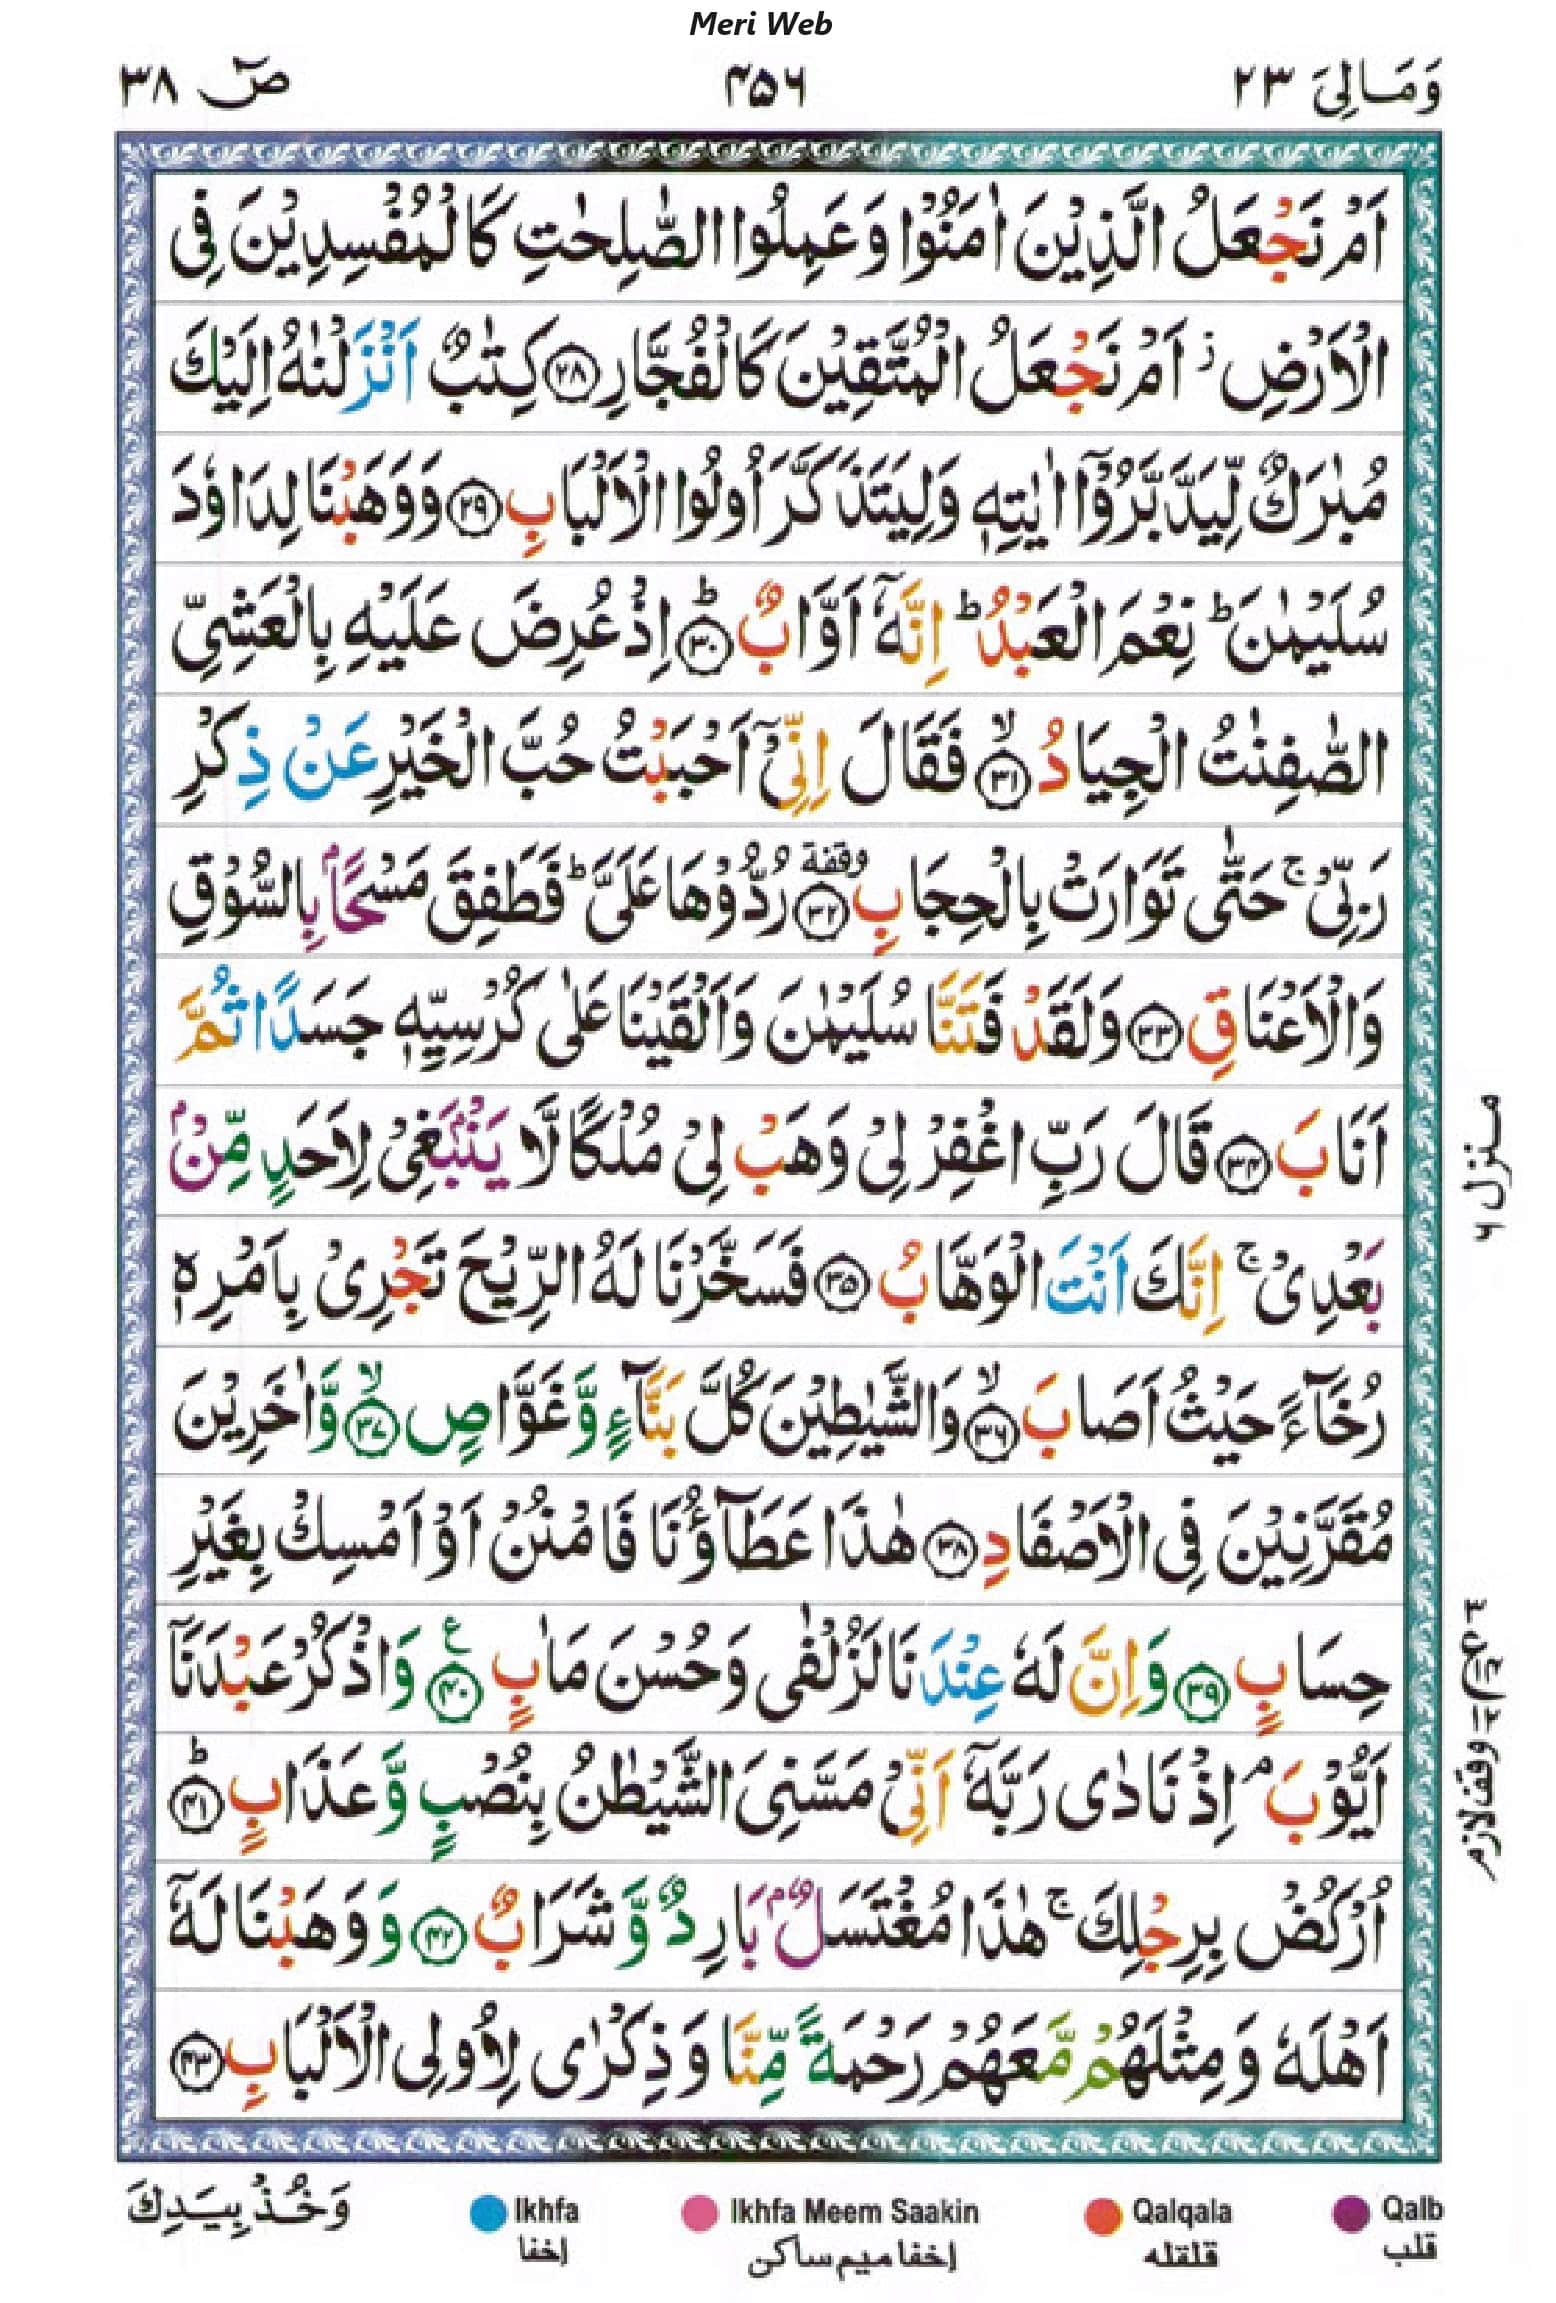 Meri Web
وَمَالِیَ ۲۳
۴۵۶
صٓ ۳۸
اَمْ نَجْعَلُ الَّذِیْنَ اٰمَنُوْا وَعَمِلُوا الصّٰلِحٰتِ كَالْمُفْسِدِیْنَ فِی
الْاَرْضِ ؗ اَمْ نَجْعَلُ الْمُتَّقِیْنَ كَالْفُجَّارِ ۲۸ كِتٰبٌ اَنْزَلْنٰهُ اِلَیْكَ
مُبٰرَكٌ لِّیَدَّبَّرُوْۤا اٰیٰتِهٖ وَلِیَتَذَكَّرَ اُولُوا الْاَلْبَابِ ۲۹ وَوَهَبْنَا لِدَاوٗدَ
سُلَیْمٰنَ ؕ نِعْمَ الْعَبْدُ ؕ اِنَّهٗۤ اَوَّابٌ ؕ۳۰ اِذْ عُرِضَ عَلَیْهِ بِالْعَشِیِّ
الصّٰفِنٰتُ الْجِیَادُ ۙ۳۱ فَقَالَ اِنِّیْۤ اَحْبَبْتُ حُبَّ الْخَیْرِ عَنْ ذِكْرِ
رَبِّیْ ۚ حَتّٰی تَوَارَتْ بِالْحِجَابِ وقفة ۳۲ رُدُّوْهَا عَلَیَّ ؕ فَطَفِقَ مَسْحًۢا بِالسُّوْقِ
وَالْاَعْنَاقِ ۳۳ وَلَقَدْ فَتَنَّا سُلَیْمٰنَ وَاَلْقَیْنَا عَلٰی كُرْسِیِّهٖ جَسَدًا ثُمَّ
اَنَابَ ۳۴ قَالَ رَبِّ اغْفِرْ لِیْ وَهَبْ لِیْ مُلْكًا لَّا یَنْۢبَغِیْ لِاَحَدٍ مِّنْۢ
بَعْدِیْ ۚ اِنَّكَ اَنْتَ الْوَهَّابُ ۳۵ فَسَخَّرْنَا لَهُ الرِّیْحَ تَجْرِیْ بِاَمْرِهٖ
رُخَآءً حَیْثُ اَصَابَ ۙ۳۶ وَالشَّیٰطِیْنَ كُلَّ بَنَّآءٍ وَّغَوَّاصٍ ۙ۳۷ وَّاٰخَرِیْنَ
مُقَرَّنِیْنَ فِی الْاَصْفَادِ ۳۸ هٰذَا عَطَآؤُنَا فَامْنُنْ اَوْ اَمْسِكْ بِغَیْرِ
حِسَابٍ ۳۹ وَاِنَّ لَهٗ عِنْدَنَا لَزُلْفٰی وَحُسْنَ مَاٰبٍ ع ۴۰ وَاذْكُرْ عَبْدَنَاۤ
اَیُّوْبَ ۘ اِذْ نَادٰی رَبَّهٗۤ اَنِّیْ مَسَّنِیَ الشَّیْطٰنُ بِنُصْبٍ وَّعَذَابٍ ؕ۴۱
اُرْكُضْ بِرِجْلِكَ ۚ هٰذَا مُغْتَسَلٌۢ بَارِدٌ وَّشَرَابٌ ۴۲ وَوَهَبْنَا لَهٗۤ
اَهْلَهٗ وَمِثْلَهُمْ مَّعَهُمْ رَحْمَةً مِّنَّا وَذِكْرٰی لِاُولِی الْاَلْبَابِ ۴۳
منزل ۶
وقف لازم
وَخُذْ بِیَدِكَ
Ikhfa
Ikhfa Meem Saakin
Qalqala
Qalb
إخفا
إخفا میم ساکن
قلقله
قلب